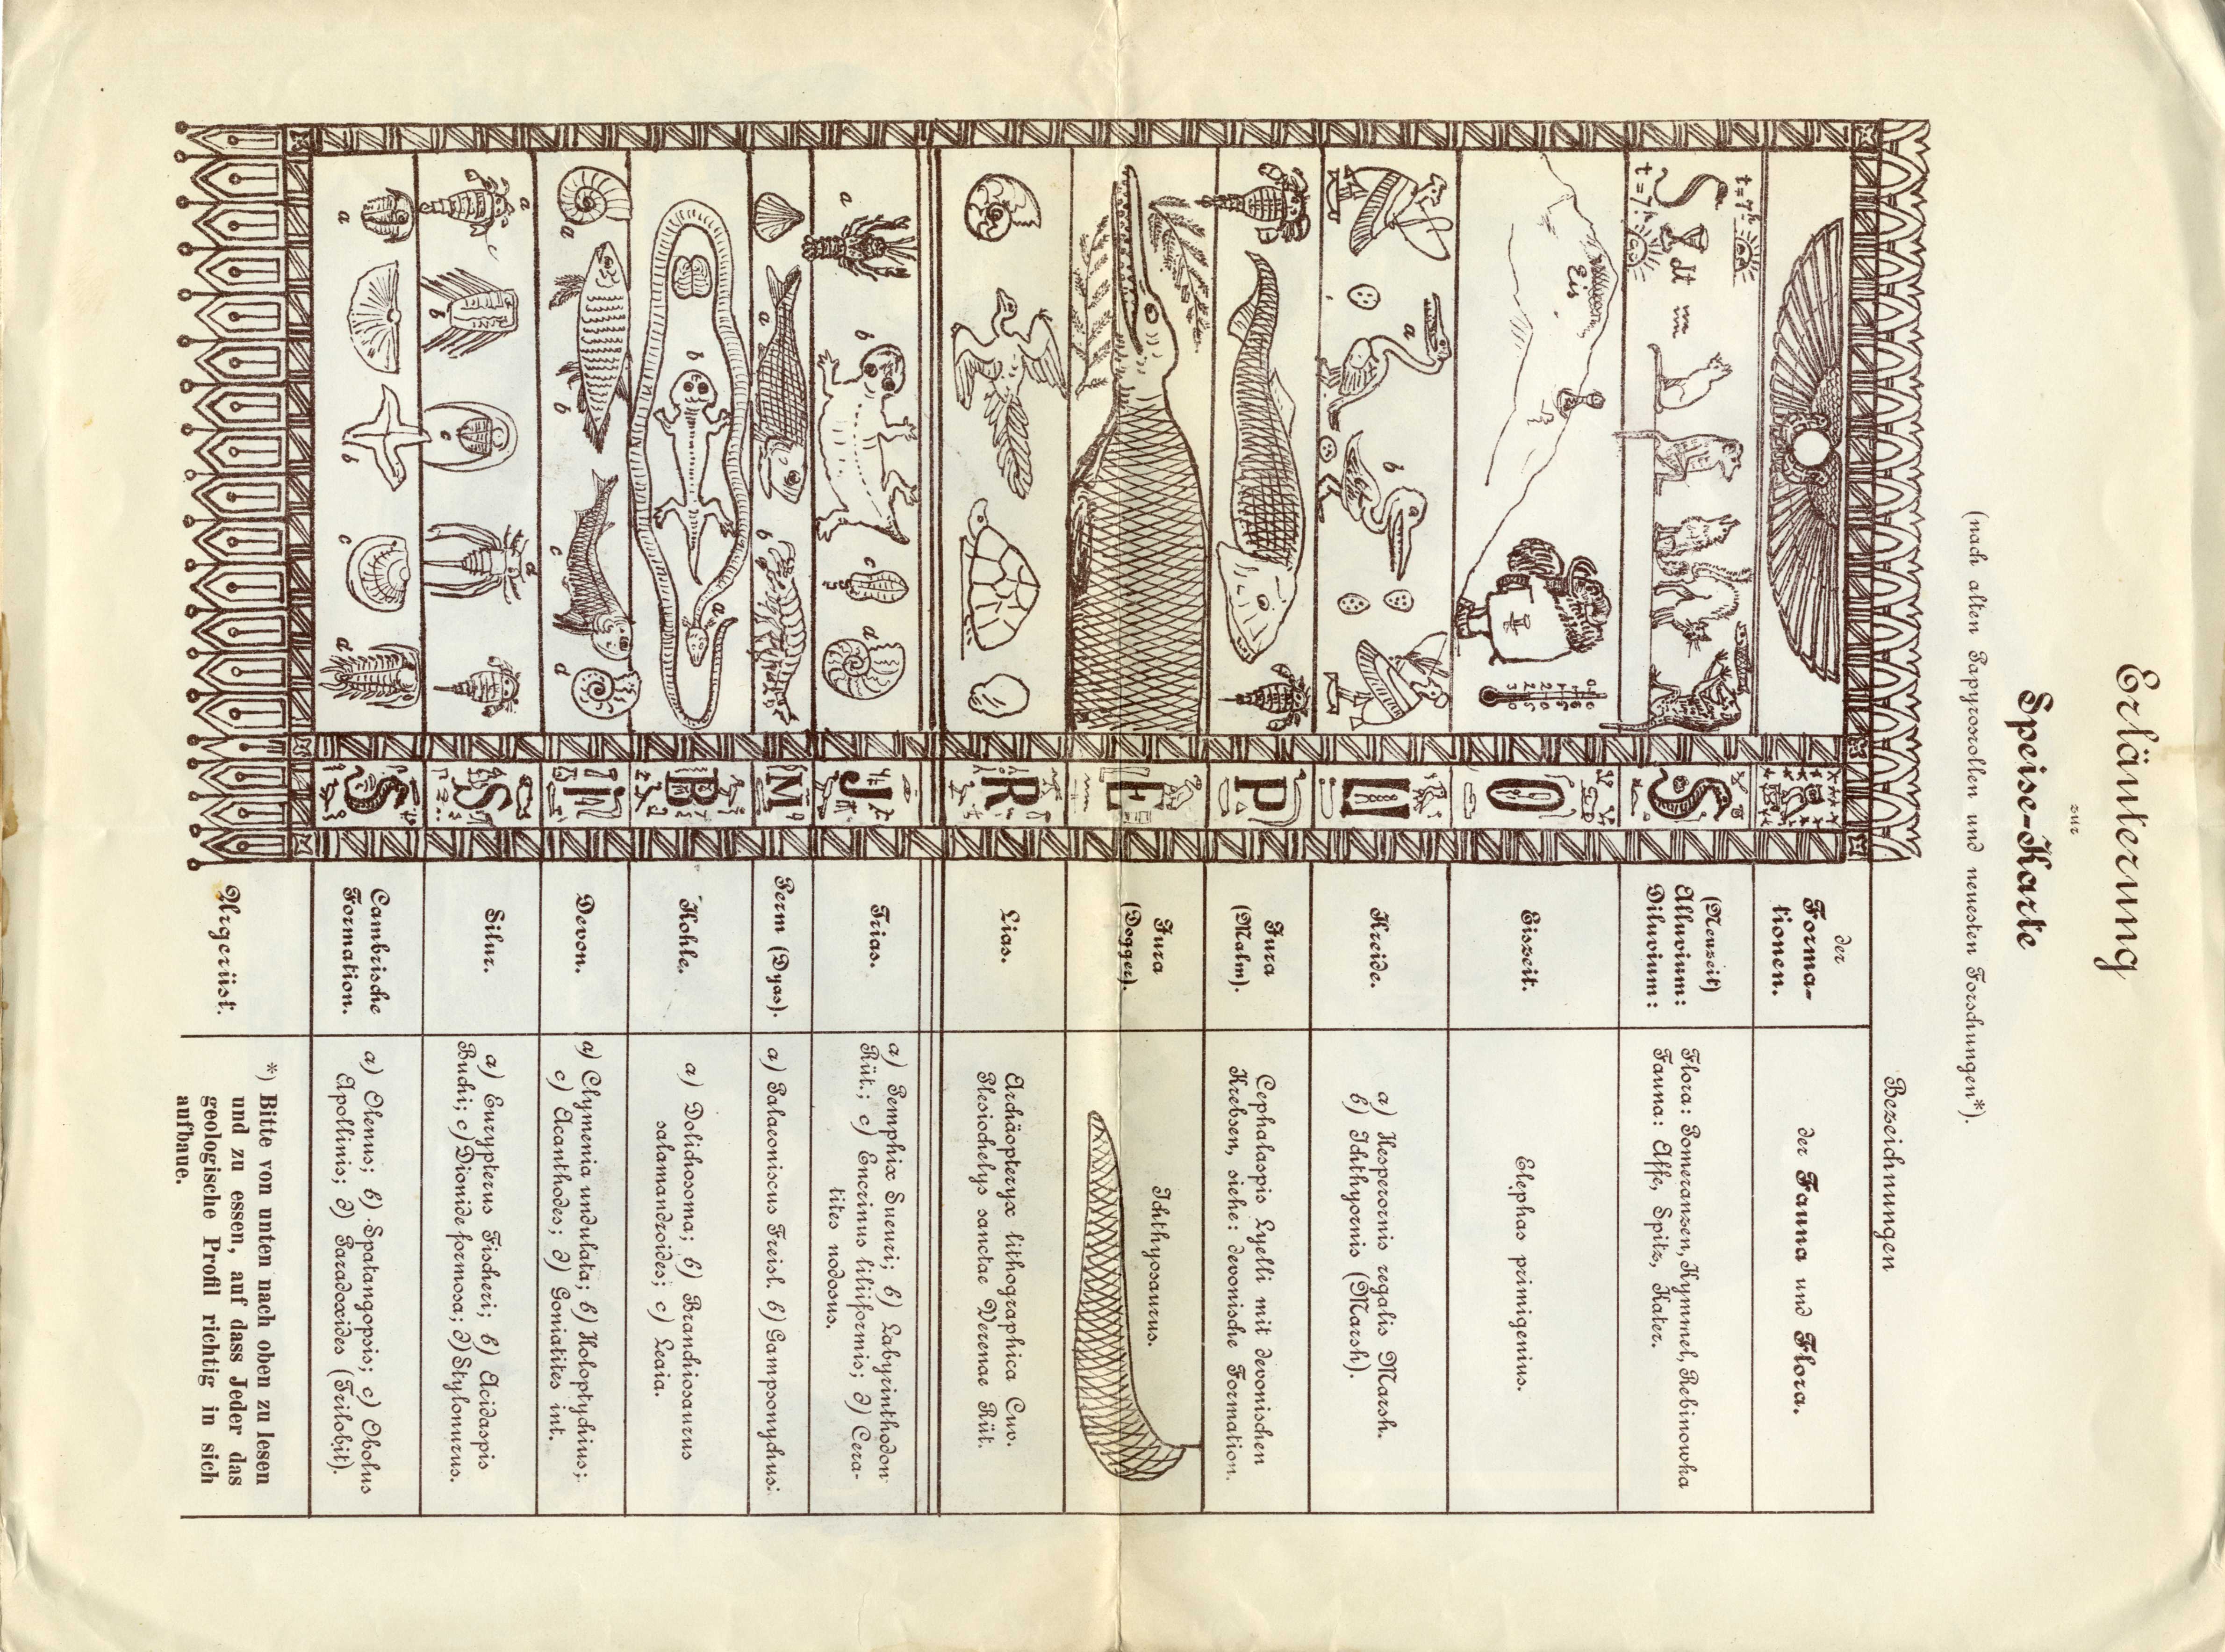 Erläuterung
zur
Speise-Karte
(nach alten Papyrosrollen und neuesten Forschungen*).
Bezeichnungen
der
Forma-
tionen.
der Fauna und Flora.
t = 7h
S dt
t = 7h
(Neuzeit)
Alluvium:
Diluvium:
Flora: Pomeranzen, Kymmel, Rebinowka
Fauna: Affe, Spitz, Kater.
S
Eis
O
Eiszeit.
Elephas primigenius.
a
b
U
Kreide.
a) Hesperornis regalis Marsh.
b) Ichthyornis (Marsh).
P
Jura
(Malm).
Cephalaspis Lyelli mit devonischen
Krebsen, siehe: devonische Formation.
E
Jura
(Dogger).
Ichthyosaurus.
R
Lias.
Archäopteryx lithographica Cuv.
Plesiochelys sanctae Verenae Rüt.
a
b
c
d
J
Trias.
a) Pemphix Sueuri; b) Labyrinthodon
Rüt.; c) Encrinus liliiformis; d) Cera-
tites nodosus.
a
b
M
Perm (Dyas).
a) Palaeoniscus Freisl. b) Gamponychus:
b
a
B
Kohle.
a) Dolichosoma; b) Branchiosaurus
salamandroides; c) Leaia.
a
b
c
d
Devon.
a) Clymenia undulata; b) Holoptychius;
c) Acanthodes; d) Goniatites int.
a
b
c
d
S
Silur.
a) Eurypterus Fischeri; b) Acidaspis
Buchi; c) Dionide formosa; d) Stylonurus.
a
b
c
d
S
Cambrische
Formation.
a) Olenus; b) Spatangopsis; c) Obolus
Apollinis; d) Paradoxides (Trilobit).
Urgerüst.
*) Bitte von unten nach oben zu lesen
und zu essen, auf dass Jeder das
geologische Profil richtig in sich
aufbaue.